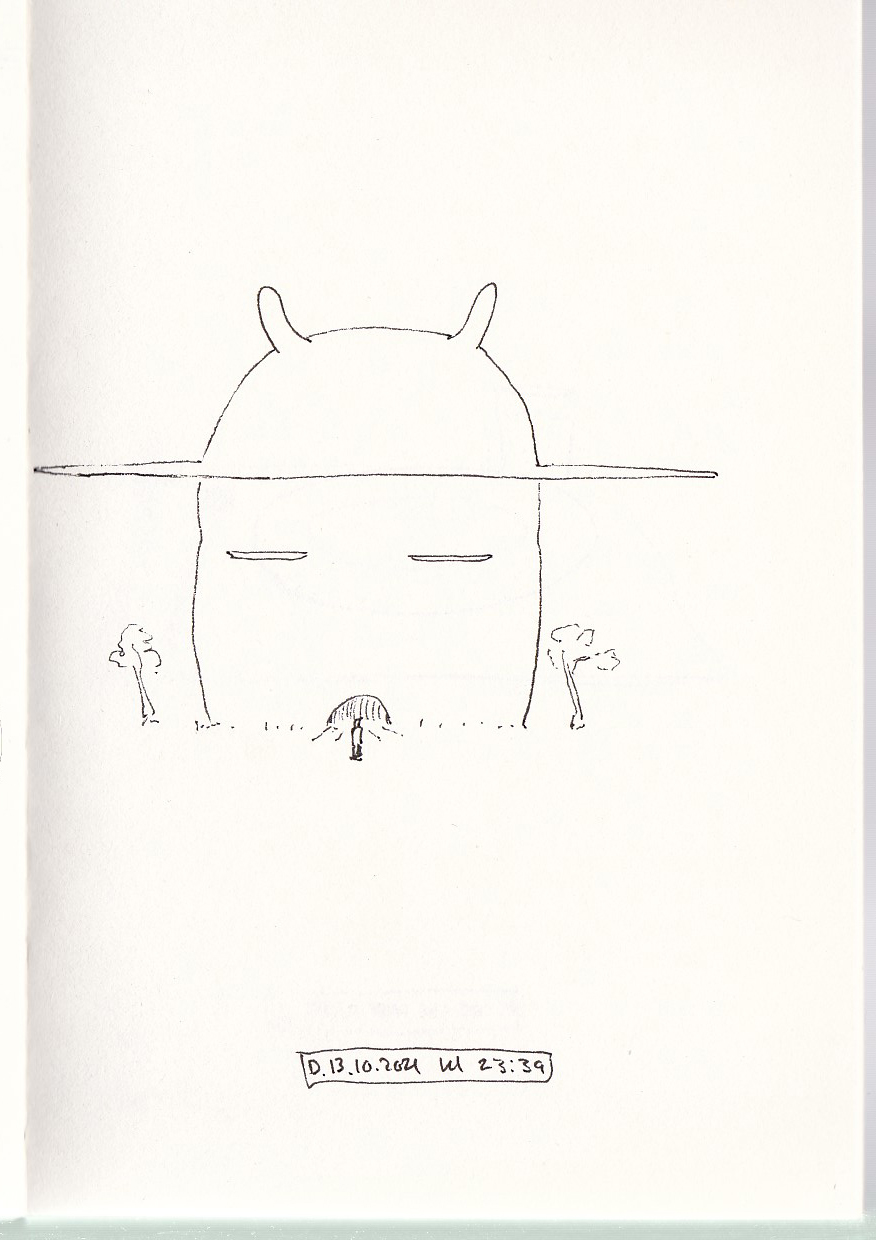 D.13.10.2021 kl 23:39